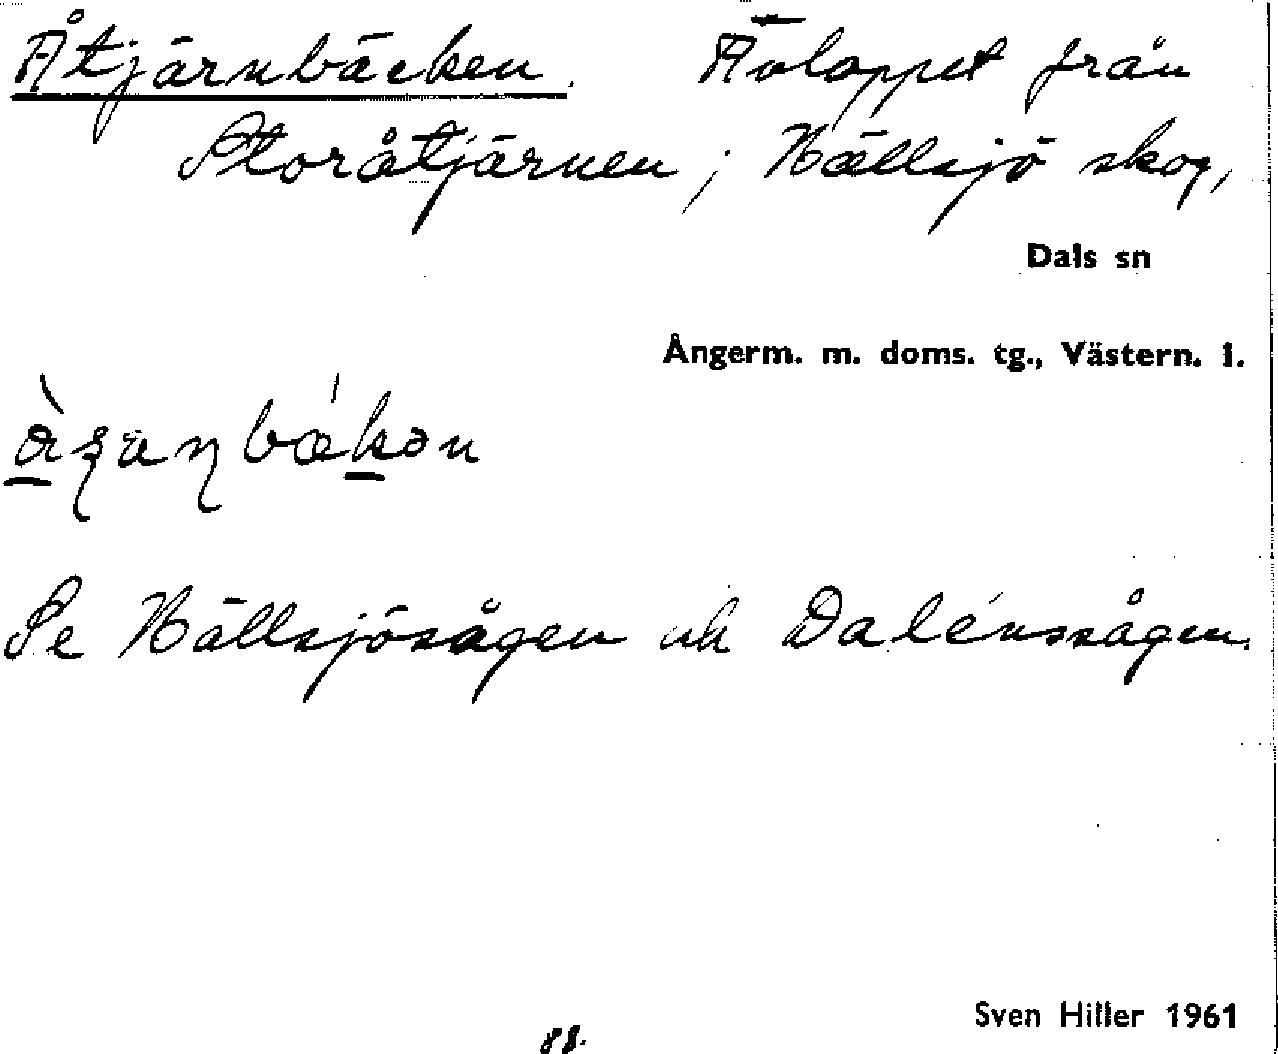 Åtjärnbäcken. Avloppet från
Storåtjärnen; Hällsjö skog,
Dals sn
Ångerm. m. doms. tg., Västern. l.
Se Hällsjösågen och Dalénssågen.
Sven Hiller 1961
88.